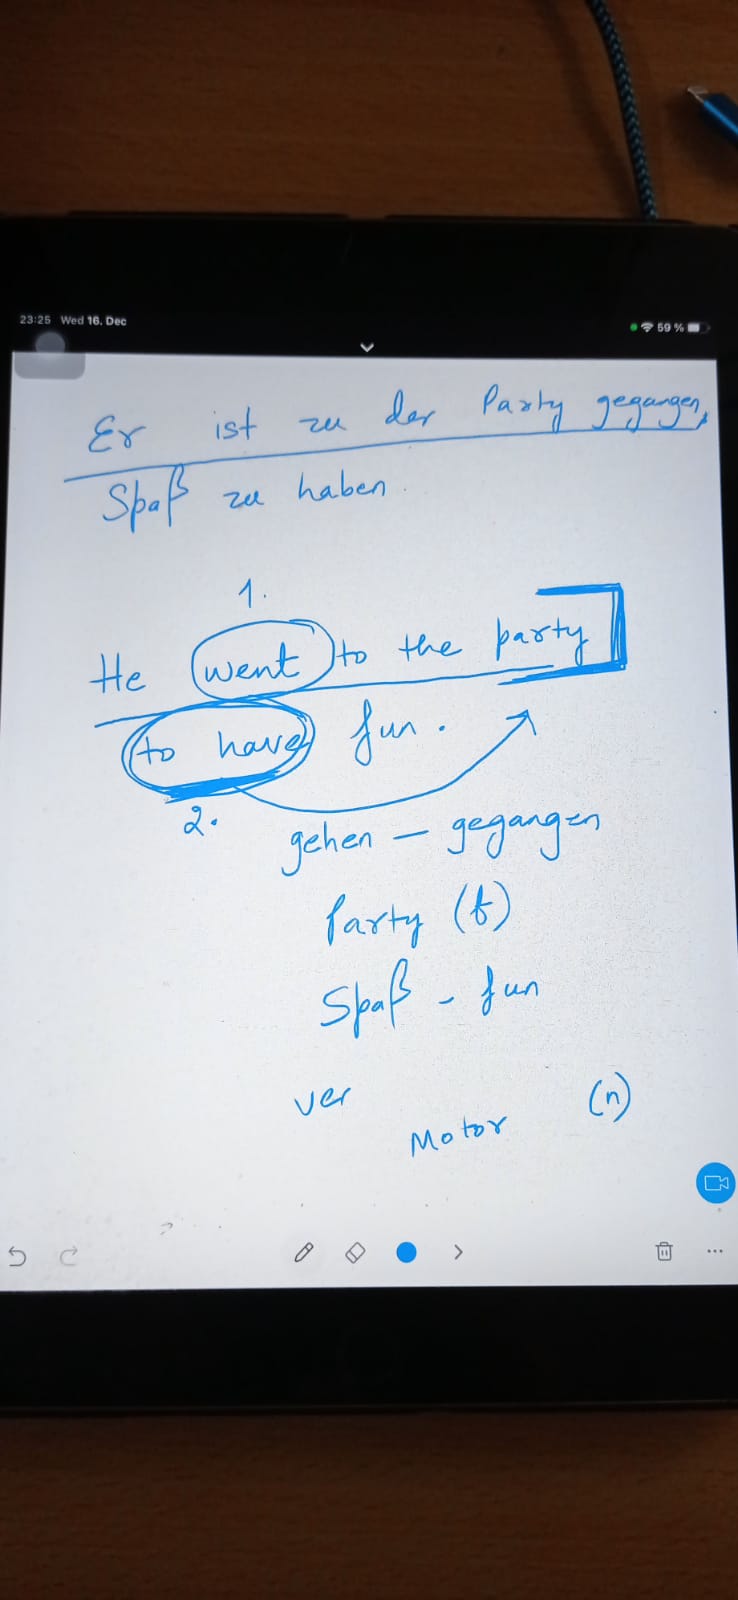 23:25 Wed 16. Dec
59 %
Er ist zu der Party gegangen,
Spaß zu haben.
1.
He went to the party
to have fun.
2.
gehen – gegangen
Party (f)
Spaß - fun
ver
Motor (n)